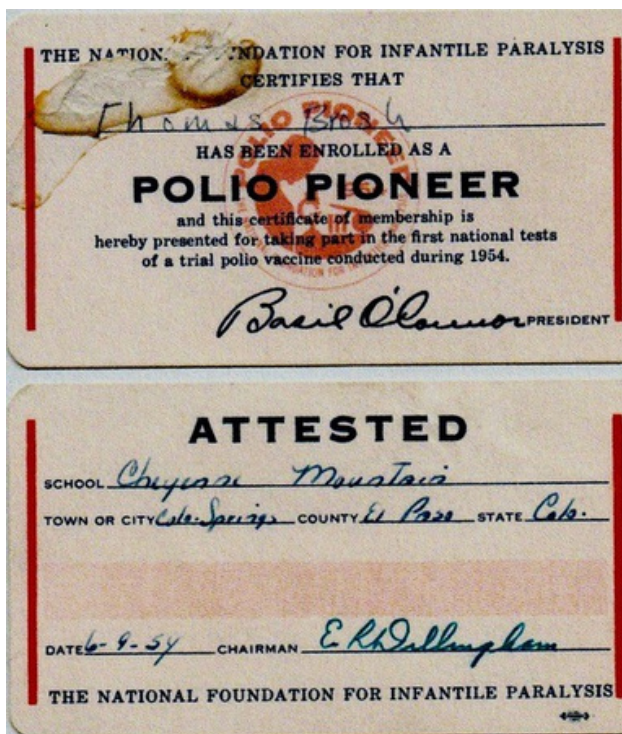 THE NATION NDATION FOR INFANTILE PARALYSIS
CERTIFIES THAT
Thomas Brosh
HAS BEEN ENROLLED AS A
POLIO PIONEER
and this certificate of membership is
hereby presented for taking part in the first national tests
of a trial polio vaccine conducted during 1954.
Basil O'Connor PRESIDENT
POLIO PIONEER
ATTESTED
SCHOOL Cheyenne Mountain
TOWN OR CITY Colo. Springs COUNTY El Paso STATE Colo.
DATE 6-9-54 CHAIRMAN E R Dillingham
THE NATIONAL FOUNDATION FOR INFANTILE PARALYSIS